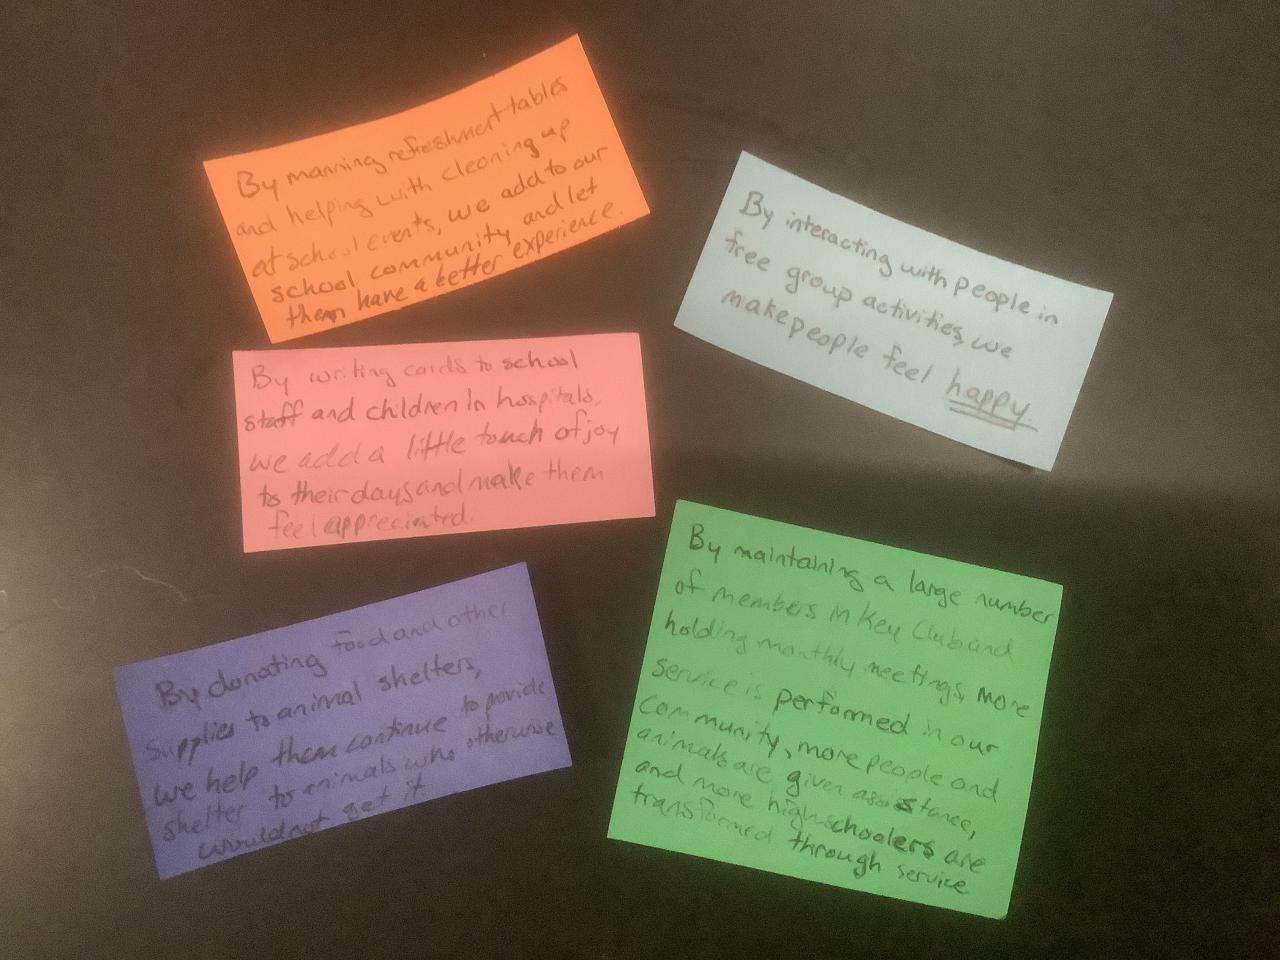 By manning refreshment tables
and helping with cleaning up
at school events, we add to our
school community and let
them have a better experience.
By interacting with people in
free group activities, we
make people feel happy.
By writing cards to school
staff and children in hospitals,
we add a little touch of joy
to their days and make them
feel appreciated.
By donating food and other
supplies to animal shelters,
we help them continue to provide
shelter to animals who otherwise
would not get it.
By maintaining a large number
of members in Key Club and
holding monthly meetings, more
service is performed in our
community, more people and
animals are given assistance,
and more highschoolers are
transformed through service